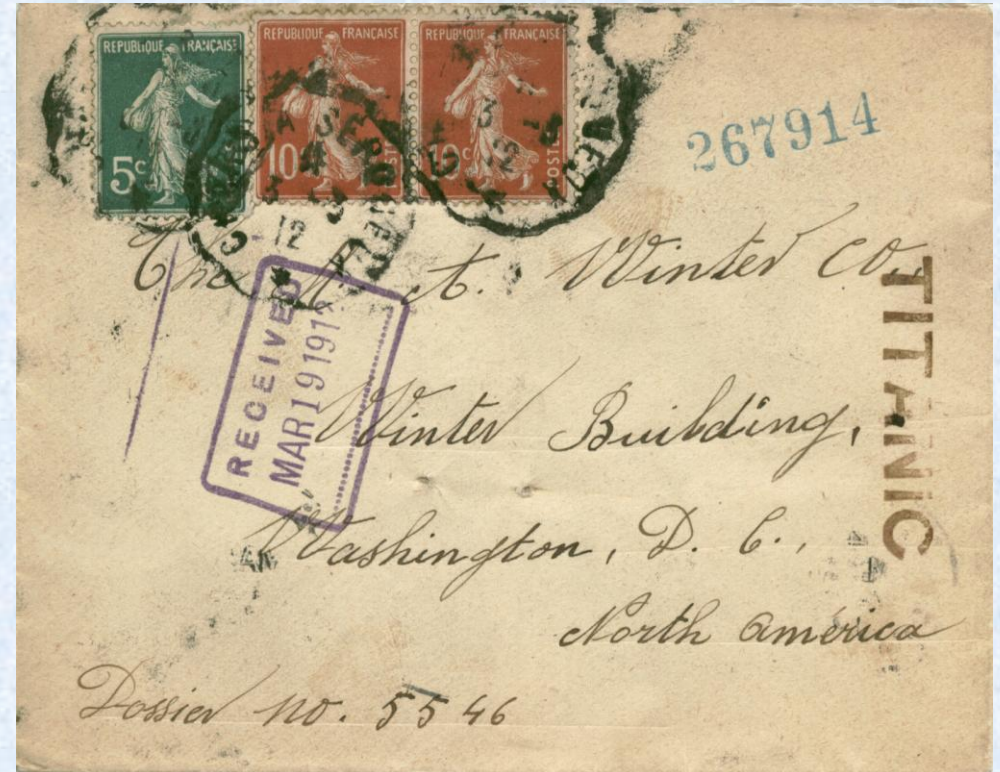 REPUBLIQUE FRANÇAISE
5c
REPUBLIQUE FRANÇAISE
10c
POSTES
REPUBLIQUE FRANÇAISE
10c
POSTES
12
3
12
267914
The A. Winter Co.
RECEIVED
MAR 19 191
TITANiC
Winter Building,
Washington, D. C.,
North America
Dossier no. 5546